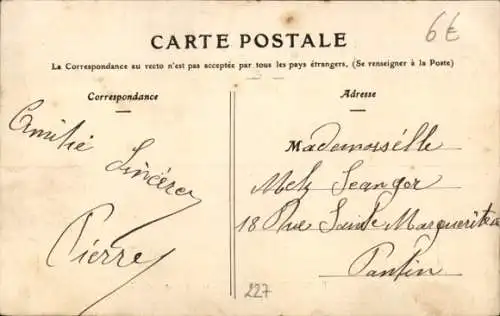 6€
CARTE POSTALE
La Correspondance au recto n'est pas acceptée par tous les pays étrangers. (Se renseigner à la Poste)
Correspondance
Adresse
Amitié
Sincère
Pierre
Mademoiselle
Metz
18 Rue Sainte Marguerite
Pantin
227